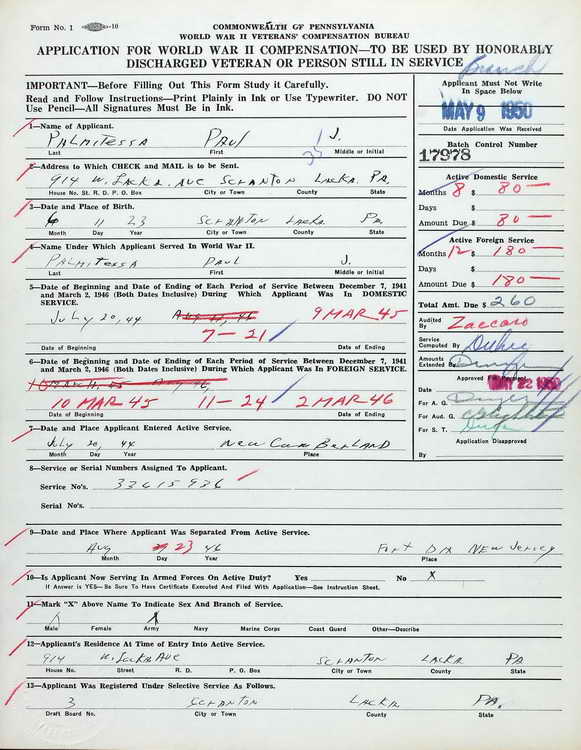 Form No. 1 -10
COMMONWEALTH OF PENNSYLVANIA
WORLD WAR II VETERANS' COMPENSATION BUREAU
APPLICATION FOR WORLD WAR II COMPENSATION—TO BE USED BY HONORABLY
DISCHARGED VETERAN OR PERSON STILL IN SERVICE
Branch
IMPORTANT—Before Filling Out This Form Study it Carefully.
Read and Follow Instructions—Print Plainly in Ink or Use Typewriter. DO NOT
Use Pencil—All Signatures Must Be in Ink.
Applicant Must Not Write
In Space Below
MAY 9 1950
Date Application Was Received
Batch Control Number
17978
1—Name of Applicant.
PALMITESSA PAUL J.
Last First Middle or Initial
2—Address to Which CHECK and MAIL is to be Sent.
914 W. LACKA. AVE SCRANTON LACKA. PA.
House No. St. R. D. P. O. Box City or Town County State
3—Date and Place of Birth.
6 11 23 SCRANTON LACKA PA
Month Day Year City or Town County State
4—Name Under Which Applicant Served In World War II.
PALMITESSA PAUL J.
Last First Middle or Initial
5—Date of Beginning and Date of Ending of Each Period of Service Between December 7, 1941
and March 2, 1946 (Both Dates Inclusive) During Which Applicant Was In DOMESTIC
SERVICE.
JULY 20, 44 AUG 11, 46 9 MAR 45
7-21
Date of Beginning Date of Ending
6—Date of Beginning and Date of Ending of Each Period of Service Between December 7, 1941
and March 2, 1946 (Both Dates Inclusive) During Which Applicant Was In FOREIGN SERVICE.
10 MAR 45 11-24 2 MAR 46
Date of Beginning Date of Ending
7—Date and Place Applicant Entered Active Service.
JULY 20, 44 NEW CUMBERLAND
Month Day Year Place
8—Service or Serial Numbers Assigned To Applicant.
Service No's. 33615936
Serial No's.
9—Date and Place Where Applicant Was Separated From Active Service.
AUG 23 46 FORT DIX NEW JERSEY
Month Day Year Place
10—Is Applicant Now Serving In Armed Forces On Active Duty? Yes No X
If Answer is YES—Be Sure To Have Certificate Executed And Filed With Application—See Instruction Sheet.
11—Mark "X" Above Name To Indicate Sex And Branch of Service.
X X
Male Female Army Navy Marine Corps Coast Guard Other—Describe
12—Applicant's Residence At Time of Entry Into Active Service.
914 W. LACKA AVE SCRANTON LACKA PA
House No. Street R. D. P. O. Box City or Town County State
13—Applicant Was Registered Under Selective Service As Follows.
3 SCRANTON LACKA PA.
Draft Board No. City or Town County State
Active Domestic Service
Months 8 $ 80—
Days $
Amount Due $ 80—
Active Foreign Service
Months 12 $ 180—
Days $
Amount Due $ 180—
Total Amt. Due $ 260
Audited By Zaccaro
Service Computed By
Amounts Extended By
Approved For Payment
Date MAY 22 1950
For A. G.
For Aud. G.
For S. T.
Application Disapproved
By